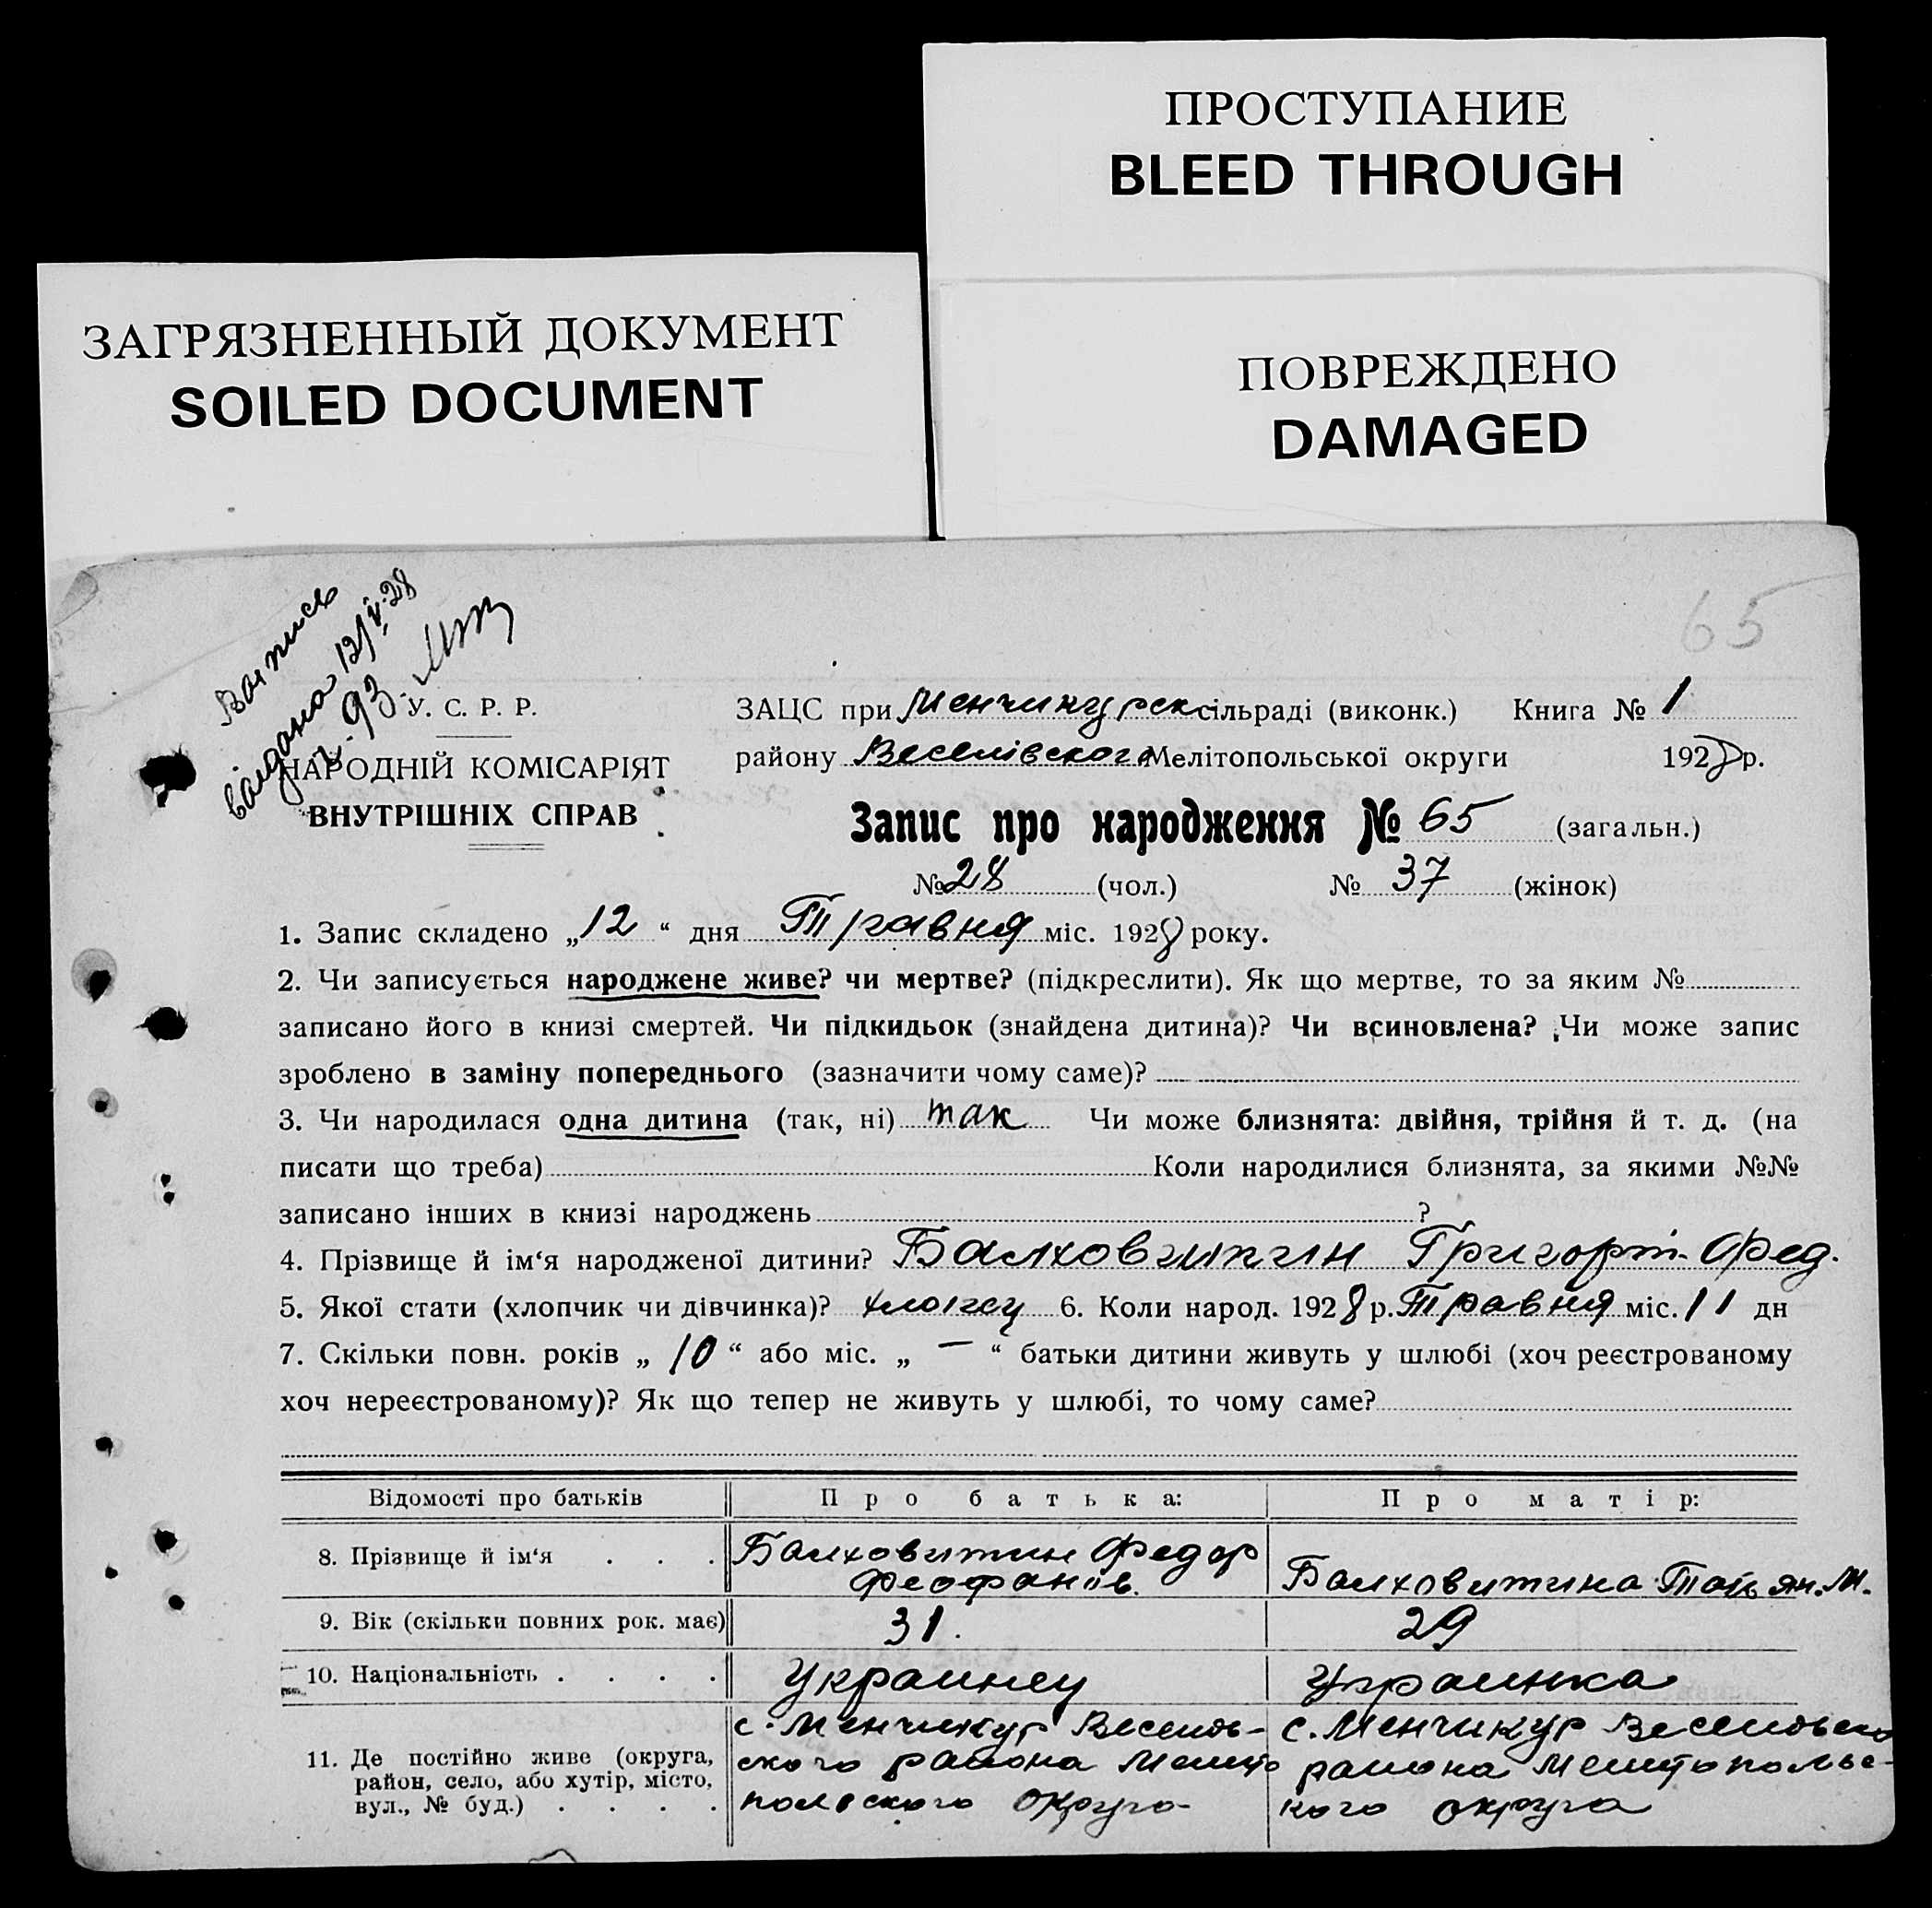 ПРОСТУПАНИЕ
BLEED THROUGH
ЗАГРЯЗНЕННЫЙ ДОКУМЕНТ
SOILED DOCUMENT
ПОВРЕЖДЕНО
DAMAGED
65
Випись
видана 12/V-28
93
У. С. Р. Р.
НАРОДНІЙ КОМІСАРІЯТ
ВНУТРІШНІХ СПРАВ
ЗАЦС при Менчикурск сільраді (виконк.) Книга № 1
району Веселівского Мелітопольської округи 1928 р.
Запис про народження № 65 (загальн.)
№ 28 (чол.) № 37 (жінок)
1. Запис складено „12“ дня Травня міс. 1928 року.
2. Чи записується народжене живе? чи мертве? (підкреслити). Як що мертве, то за яким №
записано його в книзі смертей. Чи підкидьок (знайдена дитина)? Чи всиновлена? Чи може запис
зроблено в заміну попереднього (зазначити чому саме)?
3. Чи народилася одна дитина (так, ні) так Чи може близнята: двійня, трійня й т. д. (на
писати що треба) Коли народилися близнята, за якими №№
записано інших в книзі народжень ?
4. Прізвище й ім‘я народженої дитини? Балховитин Григорт. Фед.
5. Якої стати (хлопчик чи дівчинка)? 6. Коли народ. 1928 р. Травня міс. 11 дн
7. Скільки повн. років „10“ або міс. „—“ батьки дитини живуть у шлюбі (хоч реєстрованому
хоч нереєстрованому)? Як що тепер не живуть у шлюбі, то чому саме?
Відомості про батьків Про батька: Про матір:
8. Прізвище й ім‘я . . . Балховитин Федор Феофанів. Балховитина Татьян. М.
9. Вік (скільки повних рок. має) 31. 29
10. Національність . . . . Украинец Украинка
11. Де постійно живе (округа, район, село, або хутір, місто, вул., № буд.) . . . .
с. Менчикур Веселов-
ского района Мелито
польского округа
с. Менчикур Веселовско
района Мелитопольс-
кого округа